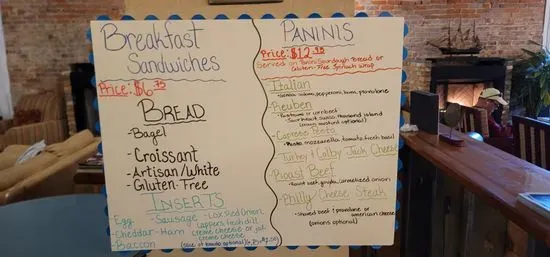 Breakfast
Sandwiches
Price: $6.75
BREAD
-Bagel
-Croissant
-Artisan/White
-Gluten-Free
INSERTS
-Egg
-Cheddar
-Bacon
-Sausage
-Ham
-Lox Red Onion,
Cappers fresh dill
creme cheese or jal.
creme cheese
PANINIS
Price: $12.95
Served on Sourdough Bread or
Gluten-Free Spinach Wrap
-Italian
-Genoa salami, pepperoni, ham, provolone
-Reuben
-Pastrami or cornbeef
Sauerkraut swiss thousand island
-Caprese Pesto
-Pesto mozzarella tomato fresh basil
-Turkey + Colby Jack Cheese
-Roast Beef
-Roast beef, gouda, caramelized onion
-Philly Cheese Steak
-Shaved beef + provolone or
american cheese
(onions optional)